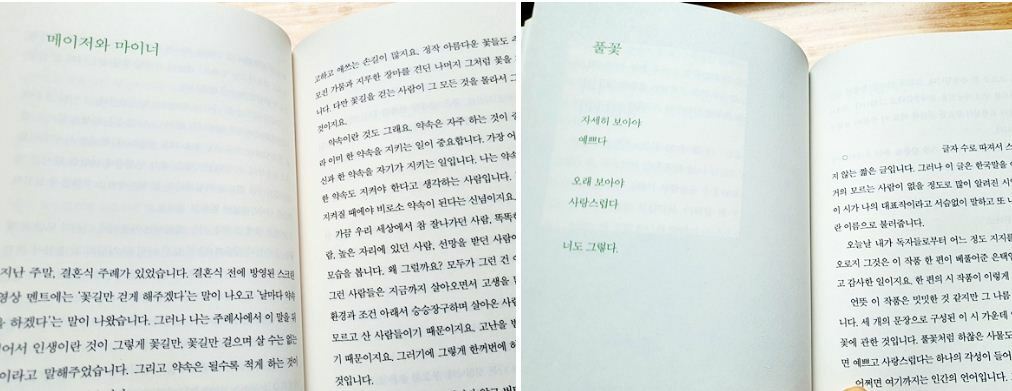 메이저와 마이너
지난 주말, 결혼식 주례가 있었습니다. 결혼식 전에 방영된 스크린
영상 멘트에는 '꽃길만 걷게 해주겠다'는 말이 나오고 '날마다 약속
을 하겠다'는 말이 나왔습니다. 그러나 나는 주례사에서 이 말을 뒤
어서 인생이란 것이 그렇게 꽃길만, 꽃길만 걸으며 살 수는 없는
이라고 말해주었습니다. 그리고 약속은 될수록 적게 하는 것이
고하고 애쓰는 손길이 많지요. 정작 아름다운 꽃들도
모진 가뭄과 지루한 장마를 견딘 나머지 그처럼 꽃을
니다. 다만 꽃길을 걷는 사람이 그 모든 것을 몰라서 그
것이지요.
약속이란 것도 그래요. 약속은 자주 하는 것이
라 이미 한 약속을 지키는 일이 중요합니다. 가장 어
신과 한 약속을 자기가 지키는 일입니다. 나는 약속
한 약속도 지켜야 한다고 생각하는 사람입니다.
지켜질 때에야 비로소 약속이 된다는 신념이지요.
가끔 우리 세상에서 참 잘나가던 사람, 똑똑하
람, 높은 자리에 있던 사람, 선망을 받던 사람이
모습을 봅니다. 왜 그럴까요? 모두가 그런 건
그런 사람들은 지금까지 살아오면서 고생을
환경과 조건 아래서 승승장구하며 살아온 사람
모르고 산 사람들이기 때문이지요. 고난을
기 때문이지요. 그러기에 그렇게 한꺼번에 허
것입니다.
풀꽃
자세히 보아야
예쁘다
오래 보아야
사랑스럽다
너도 그렇다.
글자 수로 따져서 스
지 않는 짧은 글입니다. 그러나 이 글은 한국말을
거의 모르는 사람이 없을 정도로 많이 알려진 시
이 시가 나의 대표작이라고 서슴없이 말하고 또 나
란 이름으로 불러줍니다.
오늘날 내가 독자들로부터 어느 정도 지지를
오로지 그것은 이 작품 한 편이 베풀어준 은택
고 감사한 일이지요. 한 편의 시 작품이 이렇게
언뜻 이 작품은 밋밋한 것 같지만 그 나름
니다. 세 개의 문장으로 구성된 이 시 가운데
꽃에 관한 것입니다. 풀꽃처럼 하찮은 사물도
면 예쁘고 사랑스럽다는 하나의 각성이 들어
어쩌면 여기까지는 인간의 언어입니다.